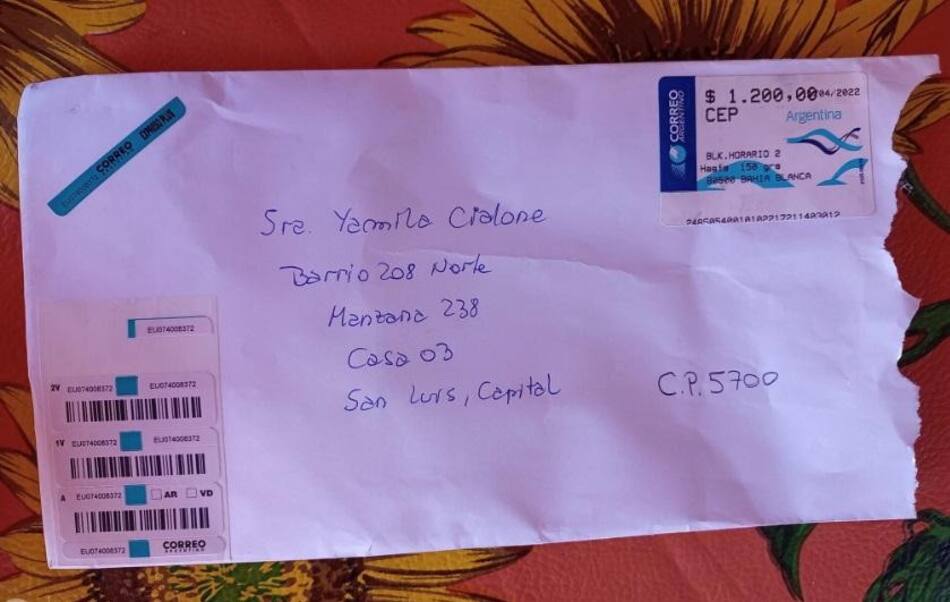 EU074008372 CORREO EXPRESO PLUS
CORREO ARGENTINO
$ 1.200,00 04/2022
CEP
Argentina
BLK.HORARIO 2
Hasta 150 grs
B8500 BAHIA BLANCA
Sra. Yamila Cialone
Barrio 208 Norte
Manzana 238
Casa 03
San Luis, Capital
C.P. 5700
EU074008372
2V EU074008372 EU074008372
1V EU074008372 EU074008372
A EU074008372 AR VD
EU074008372 CORREO ARGENTINO